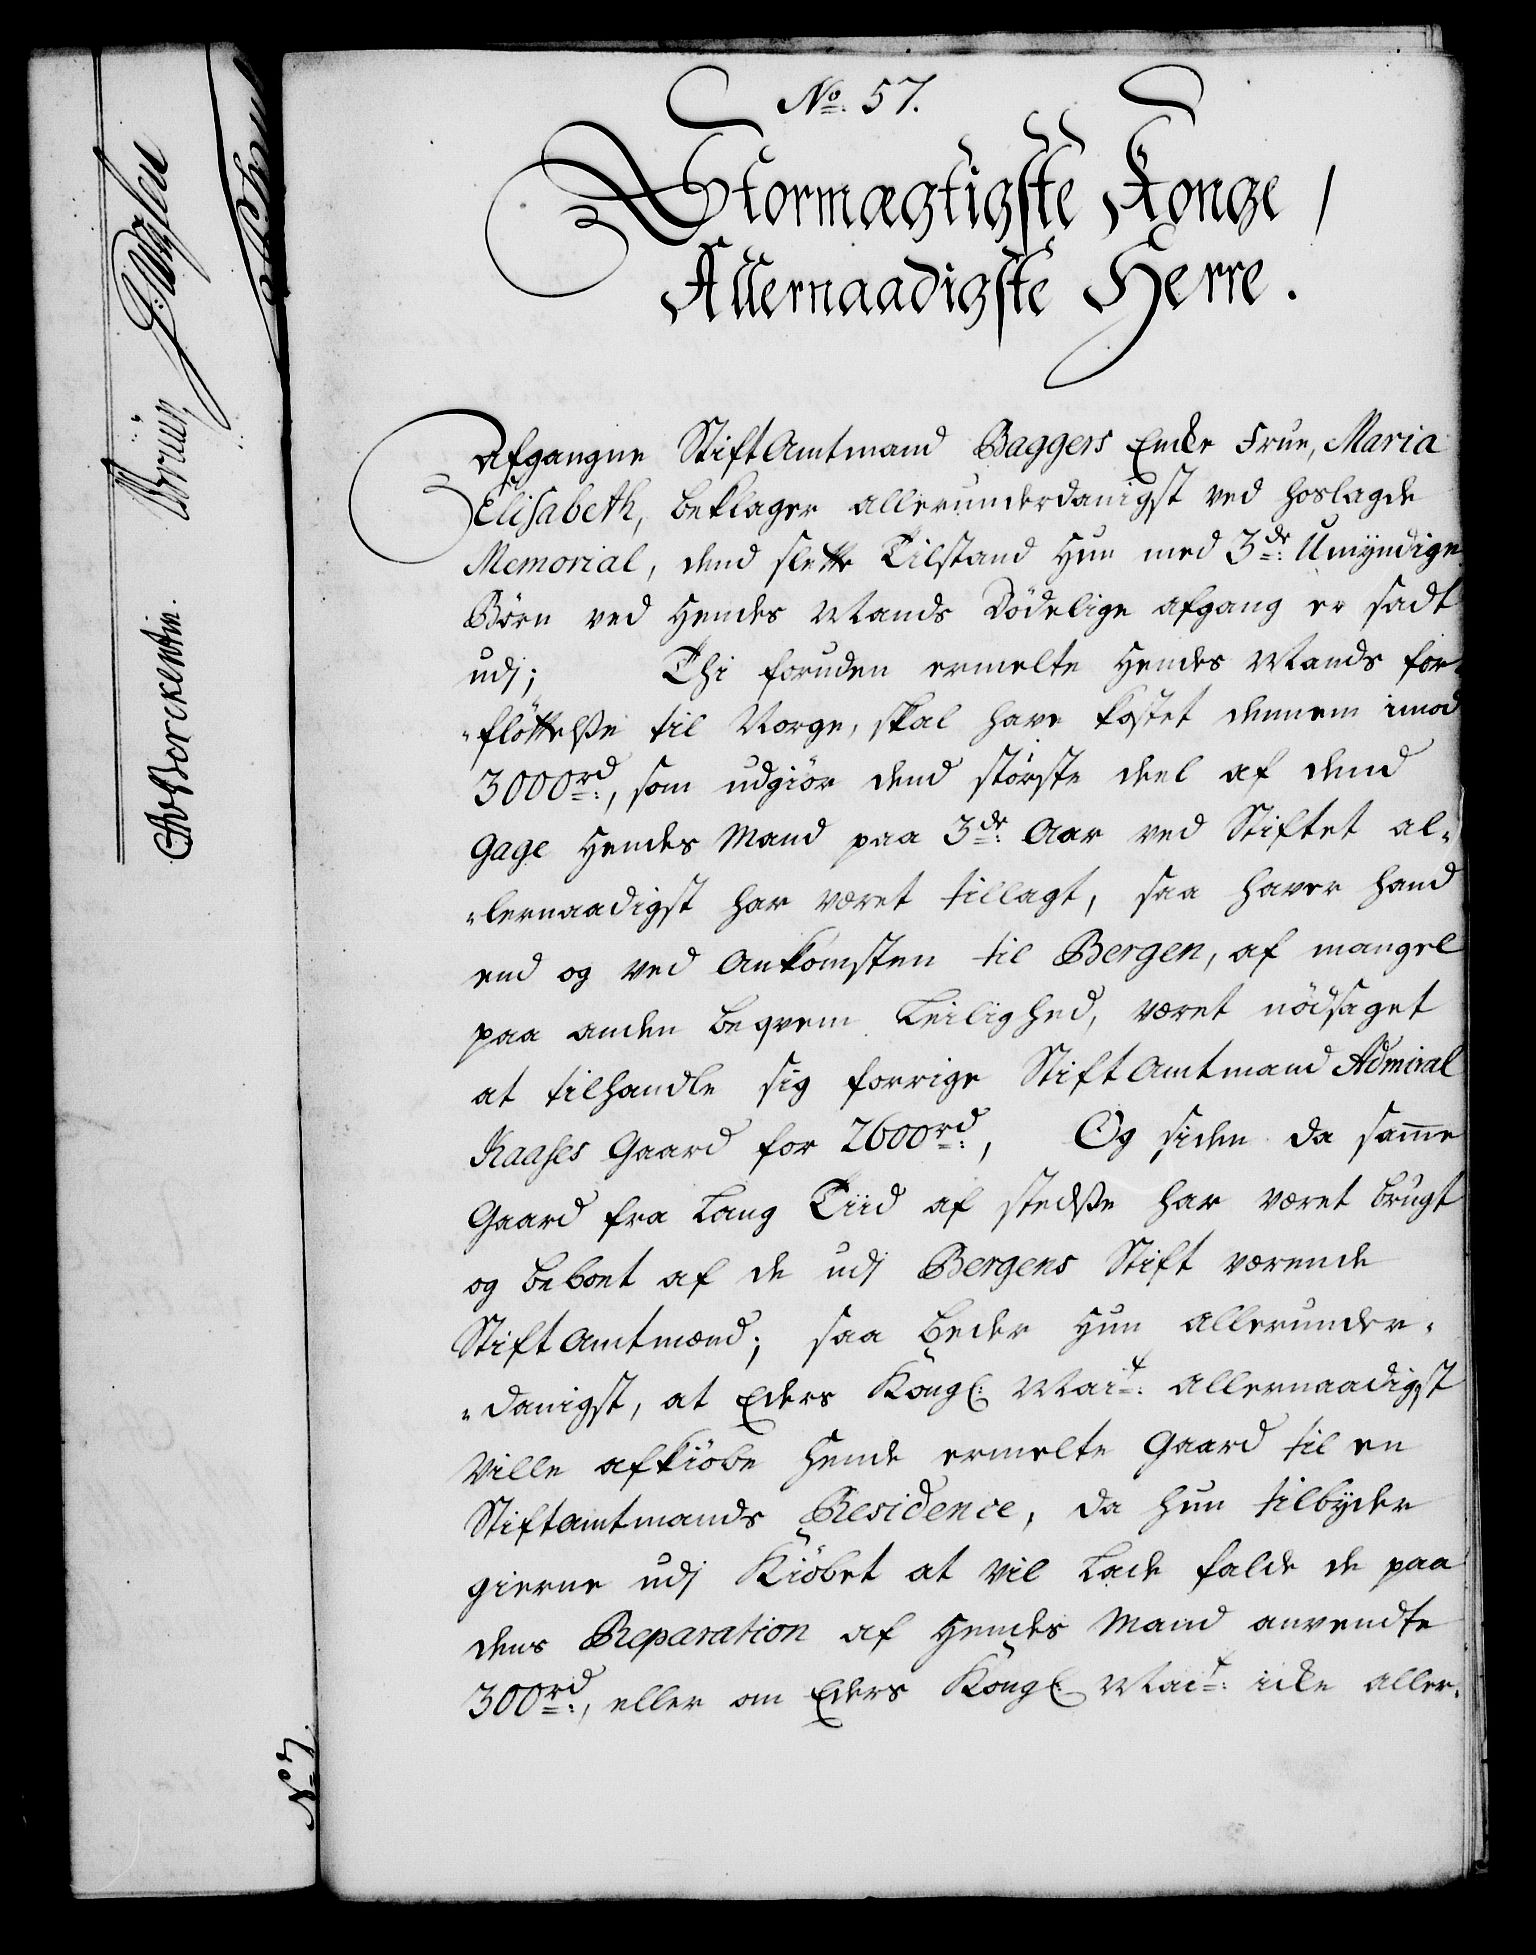 No. 57.
Stormægtigste Konge /
Allernaadigste Herre.
Afgangne StiftAmtmand Baggers Encke Frue, Maria
Elisabeth, beklager allerunderdanigst ved hoslagde
Memorial, dend slette Tilstand Hun med 3de: Umÿndige
Börn ved Hendes Mands Dödelige afgang er sadt
udj; Thi foruden ermelte Hendes Mands for-
„fløttelsse til Norge, skal have kostet dennem imod
3000rd:, som udgiör dend störste deel af dend
Gage Hendes Mand paa 3de: Aar ved Stiftet al-
„lernaadigst har været tillagt, saa haver hand
end og ved Ankomsten til Bergen, af mangel
paa anden beqvem Leilighed, været nödsaget
at tilhandle sig forrige StiftAmtmand Admiral
Kaases Gaard for 2600rd:, Og siden da samme
Gaard fra Lang Tiid af stedsse har været brugt
og beboet af de udj Bergens Stift værende
StiftAmtmænd; saa beder Hun allerunder-
„danigst, at Eders Kongl: Mait: allernaadigst
Ville afkiöbe Hende ermelte Gaard til en
Stiftamtmands Residence, da hun tilbÿder
gierne udj Kiöbet at vil lade falde de paa
dens Reparation af Hendes Mand anvendte
300rd:, eller om Eders Kongl: Mait: icke aller-
CAvBerckentin.
Bruün
No 7.